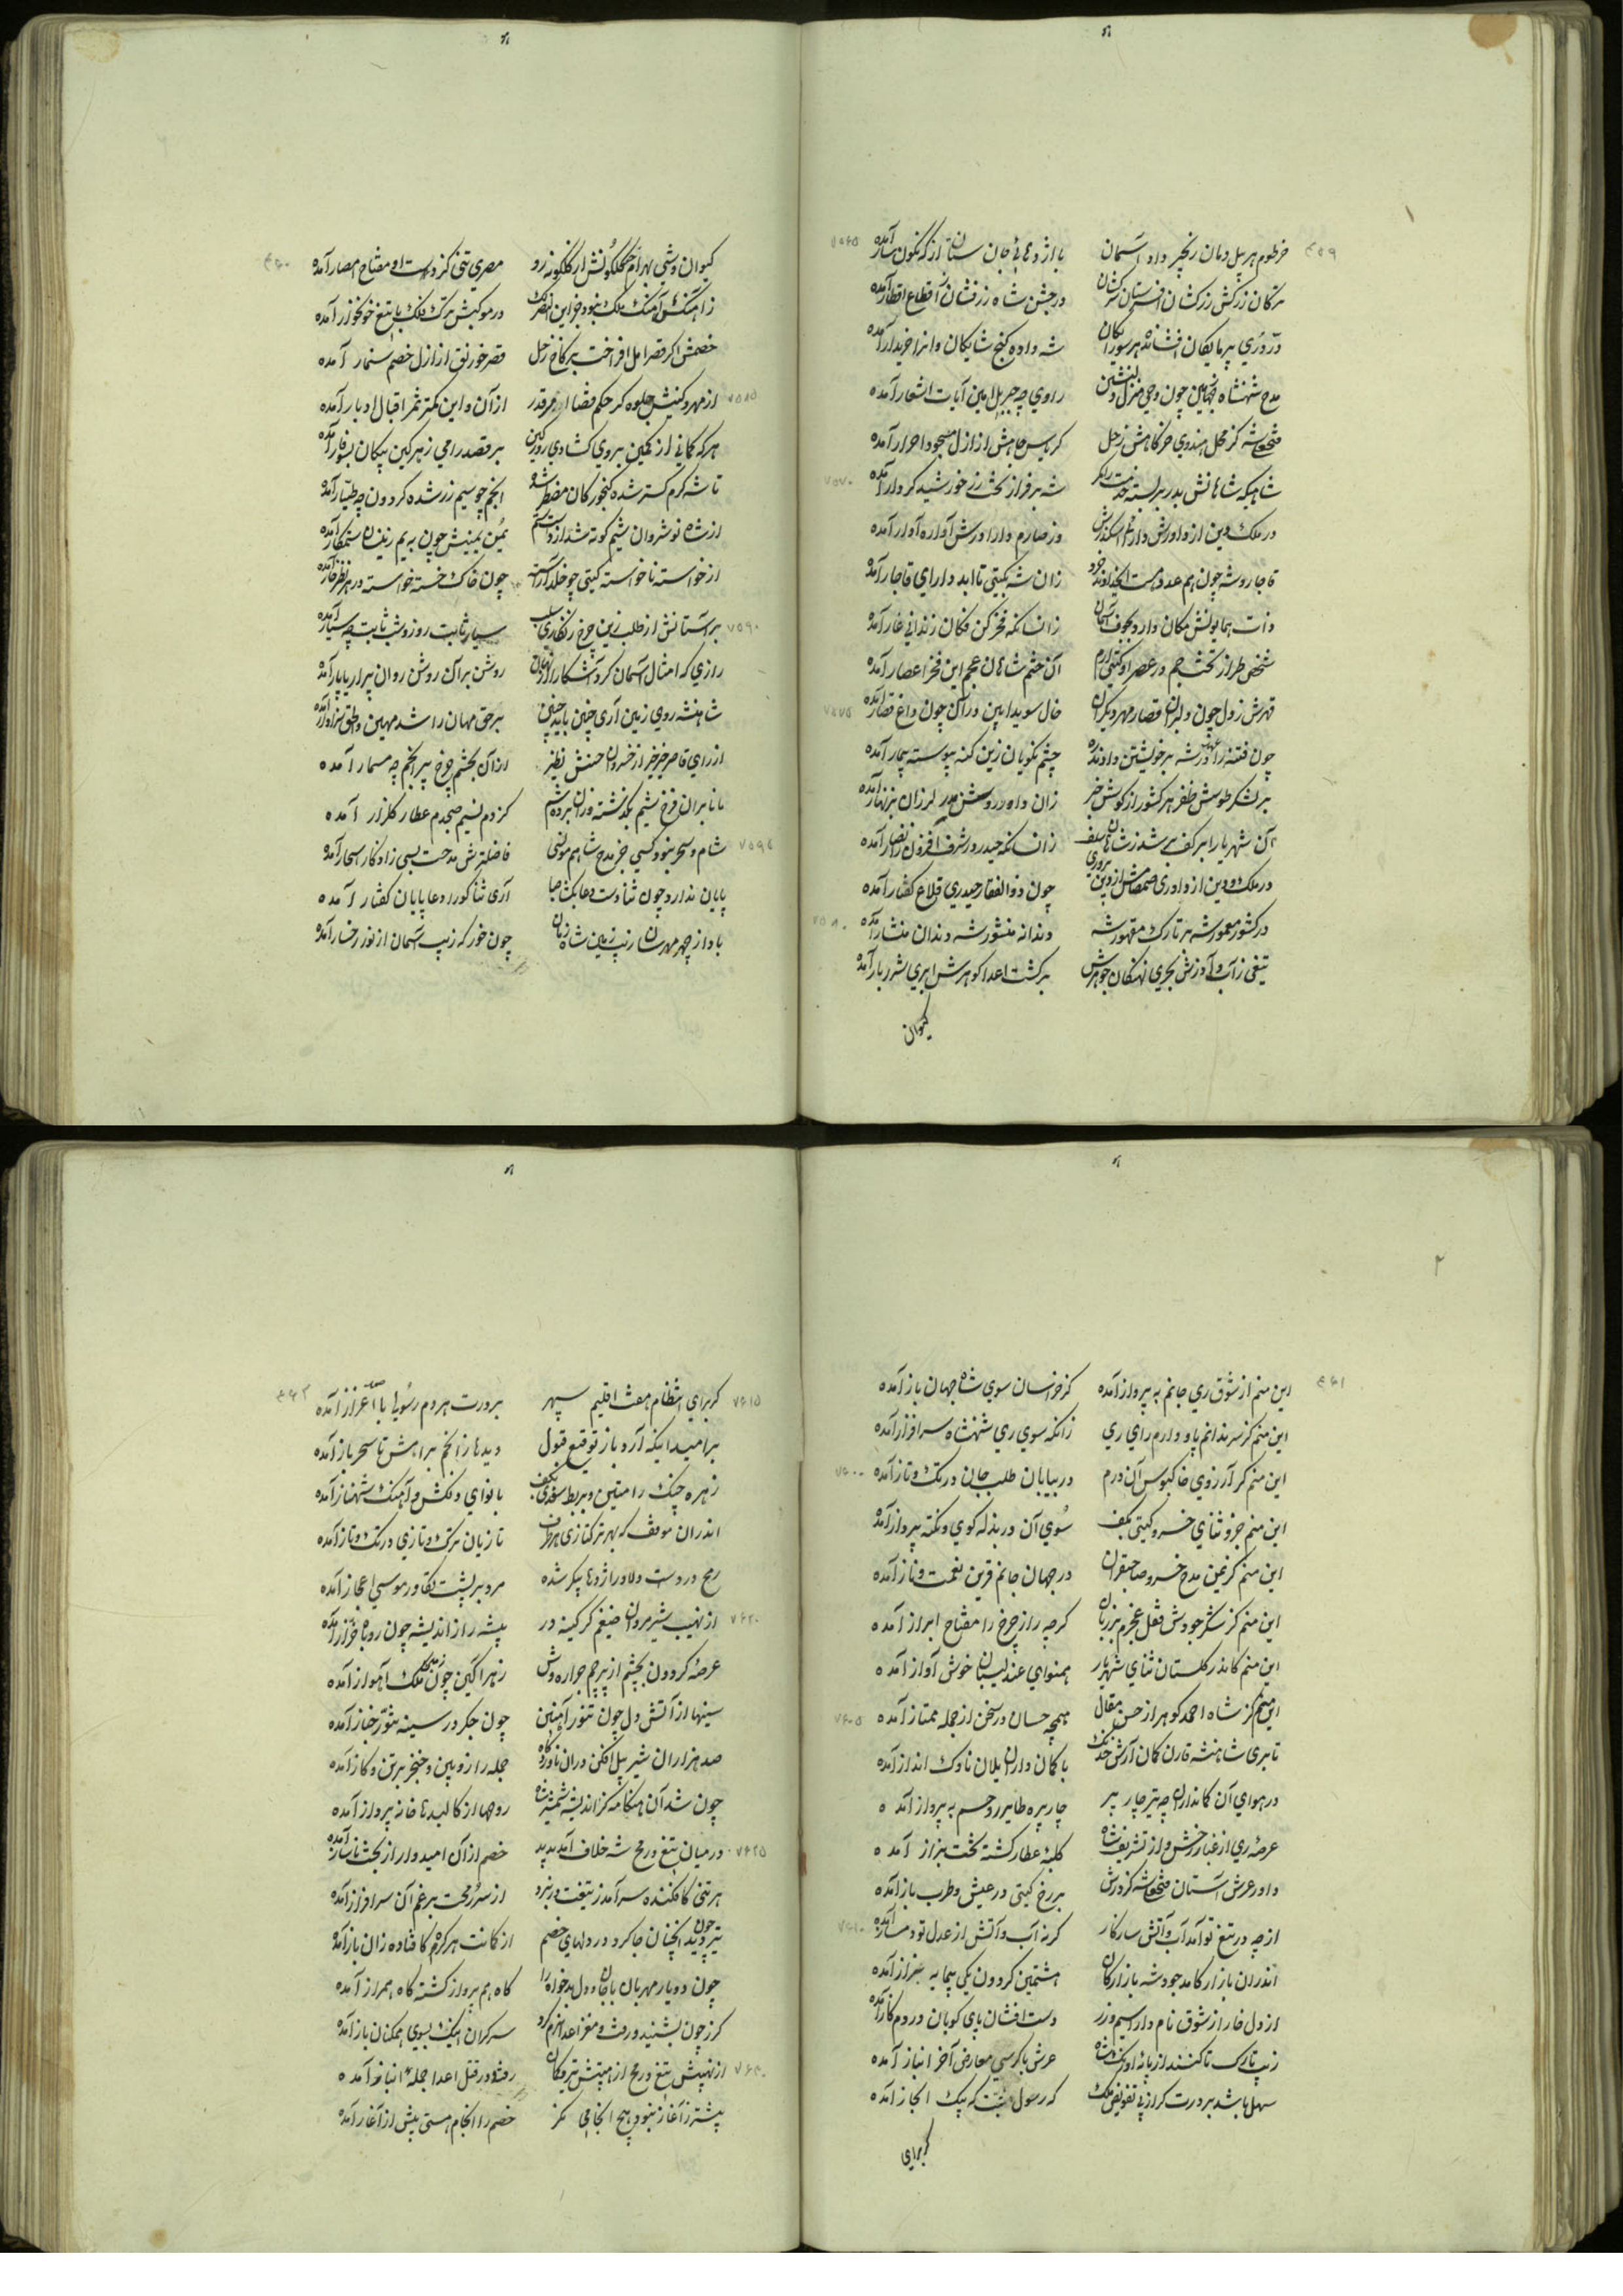 ۴۵۹
خرطوم هر پیل دمان زنجیر داود آسمان با اژدهائی جان ستان از که نگون سار آمده ۷۵۶۵
ترکان زرکش زرکشان افسرستان سرکشان در جشن شاه زرفشان اقطاع اقطار آمده
درّ دُری پرمایکان افشانده هر سو رایکان شه داده کنج شایکان وانرا خریدار آمده
مدح شهنشاه مهین چون وحی منزل دلنشین راوی چه جبریل امین آیات اشعار آمده
فتحعلیشه کز محل هندوی خرکاهش زحل کریاس جاهش از ازل مسجود احرار آمده
شاهیکه شاهانش بدر بر بسته خدمت را کمر شه بر فراز تخت زر خورشید کردار آمده ۷۵۷۰
در ملک دین از داورش دارا و اسکندرش وز صارم دارا درش آواره آوار آمده
قاجار و شه چون هم عدد هست ایخداوند خرد زان شه بکیتی تا ابد دارای قاجار آمده
ذات همایونش مکان دارد بجوف آسمان زانسانکه فخر کن فکان زندانی غار آمده
شخص طراز تخت جم در عصر او کیتی ارم آن ختم شاهان عجم این فخر اعصار آمده
قهرش زدل چون دلبران قصار مهر دیکران خال سویدا بین در آن چون داغ قصار آمده ۷۵۷۵
چون فتنه را در عهد شه بر خویشتن دادند ره چشم نکویان زین کنه پیوسته بیمار آمده
بر لشکر طوسش ظفر هر کشور از کوسش خبر زان داور روشن کهر لرزان بزنهار آمده
آن شهریار ابر کف بر شد ز شاهان سلف زانسانکه حیدر در شرف افزون ز انصار آمده
در ملک و دین از داوری صمصامش از دین پروری چون ذوالفقار حیدری قلاع کفار آمده
در کشور معمور شه هر تارک مقهور شه دندانه منشور شه دندان منشار آمده ۷۵۸۰
تیغی ز آب و آذرش بحری نهنکان جوهرش بر کشت اعدا کوهرش ابری شرر بار آمده
کیوان
۴۶۰
کیوان وشی بهرام خو کلکونش از کلکونه رو مصری تنی کز دست او مفتاح امصار آمده
زاهنکش آهنک ملک نبود جز این در موکبش ترک فلک با تیغ خونخوار آمده
خصمش اکر قصر امل افراخت بر کاخ زحل قصر خورنق از ازل خصم سنمار آمده
۷۵۸۵ از مهر و کینش جلوه کر حکم قضا امر قدر از آن و این کمتر ثمر اقبال و ادبار آمده
هر که کمانی از کمین بر وی کشاد از روی کین بر قصد رامی زهر کین پیکان بسوفار آمده
تا شه کرم کستر شده کنجور کان مضطر شده انجم چو سیم زر شده کردون چه طیّار آمده
از شاه نوشروان شیم کوته شد از دست ستم یُمن یمینش چون به یم زینسان ستمکار آمده
از خواسته ناخواسته کیتی چو خلد آراسته چون خاک خسته خواسته در هر نظر خوار آمده
۷۵۹۰ بر آستانش از طلب زین چرخ زنکاری سلب سیار ثابت روز و شب ثابت چه سیار آمده
رازی که امثال آسمان کرد آشکارا و نهان روشن بر آن روشن روان پیرار یا پار آمده
شاهنشه روی زمین آری چنین باید چنین بر حق مهان را شد مهین و الحق سزاوار آمده
از رای قاصر خیرخیر از خسروان جستش نظیر از آن بچشم چرخ پیر انجم چه مسمار آمده
مانا بر آن فرخ شیم بکذشته وزان برده شم کز دم نسیم صبحدم عطار کلزار آمده
۷۵۹۵ شام و سحر نبود کسی جز مدح شاهم مونسی فاضلترش مدحت بسی ز اذکار اسحار آمده
پایان ندارد چون ثنا دست دعا بکشا صبا آری ثنا کو را دعا پایان کفتار آمده
بادا ز چهر مهرسان زیب زمین شاه زمان چون خور که زیب آسمان از نور رخسار آمده
۴۶۱
این منم از شوق ری جانم به پرواز آمده کز خراسان سوی شاه جهان باز آمده
این منم کز سر ندانم پا و دارم رای ری زانکه سوی ری شهنشاه سرافراز آمده
این منم کر آرزوی خاکبوس آن درم در بیابان طلب جان در تک و تاز آمده ۷۶۰۰
این منم جزو ثنای خسرو کیتی بکف سوی آن در بذله کوی و نکته پرداز آمده
این منم کز یمن مدح خسرو صاحبقران در جهان جانم قرین نعمت و ناز آمده
این منم کز شکر جودش قفل عجزم بر زبان کرچه راز چرخ را مفتاح ابراز آمده
این منم کاندر کلستان ثنای شهریار همنوای عندلیبان خوش آواز آمده
این منم کز شاه احمد کوهر از حسن مقال همچه حسان در سخن از جمله ممتاز آمده ۷۶۰۵
تا بری شاهنشه قارن کمان آرش خدنک با کمان داران یلان ناوک انداز آمده
در هوای آن کمانداران چه تیر چار پر چار پره طایر روحم به پرواز آمده
عرصه ری از غبار رخش و از تشریف شاه کلبه عطار کشته تخت بزاز آمده
داور عرش آستان فتحعلیشه کز درش بر رخ کیتی در عیش و طرب باز آمده
از چه در تیغ تو آمد آب و آتش سازکار کرنه آب و آتش از عدل تو دمساز آمده ۷۶۱۰
اندران بازار کامد جود شه بازارکان هشتمین کردون یکی بیمایه بزاز آمده
از دل خار از شوق نام دارا سیم و زر دست افشان پای کوبان در دم کاز آمده
زیب تارک تا کنند از پایه اورنک شاه عرش با کرسی معارض آخر انباز آمده
سهل باشد بر درت کر از پی تفویض ملک که رسول بُست که پیک انجاز آمده
کز برای
۴۶۲
۷۶۱۵ کز برای انتظام هفت اقلیم سپهر بر درت هر دم رسولی با صد اعزاز آمده
بر امید اینکه آرد باز توقیع قبول دیدها ز انجم براهش تا سحر باز آمده
زهره چنک رامتین و بربط سغدی بکف با نوای دلکش و آهنک شهناز آمده
اندران موقف که بهر ترکتازی هر طرف تازیان ترک و تازی در تک و تاز آمده
رمح در دست دلاور اژدها پیکر شده مرد بر پشت تکاور موسی اعجاز آمده
۷۶۲۰ از نهیب شیر مردان ضیغم کر کینه در بیشه راز اندیشه چون روباه خراز آمده
عرصه کردون بچشم از پرچم جراره وش زهر آکین چون ملک اهواز آمده
سینها از آتش دل چون تنور آهنین چون جکر در سینه تنور خباز آمده
صد هزاران شیر پیل افکن در ان ناوردکاه جمله را زوبین و خنجر بر تن و کاز آمده
چون شد آن هنکامه کز اندیشه شمشیر شاه روحها از کالبدها خانه پرداز آمده
۷۶۲۵ در میان تیغ و رمح شه خلاف آمد پدید خصم از آن امیدوار از بخت ناساز آمده
هر تنی کافکنده سر آمد ز تیغت در نبرد از سر رمحت برغم آن سرافراز آمده
تیر دوید انچنان جا کرد در دلهای خصم از کمانت هر کره کافتاده زان باز آمده
چون دو یار مهربان با جان و دل بدخواه را کاه هم پرواز کشته کاه همراز آمده
کرز چون بشنید و رفت و مغز اعدا نرم کرد سرکران اینک بسوی همکنان باز آمده
۷۶۳۰ از نهیبش تیغ و رمح از هیبتش تیر و کمان رفته در قتل اعدا جمله انباز آمده
پیشتر ز آغاز نبود هیچ انجامی مکر خصم را انجام هستی پیش از آغاز آمده